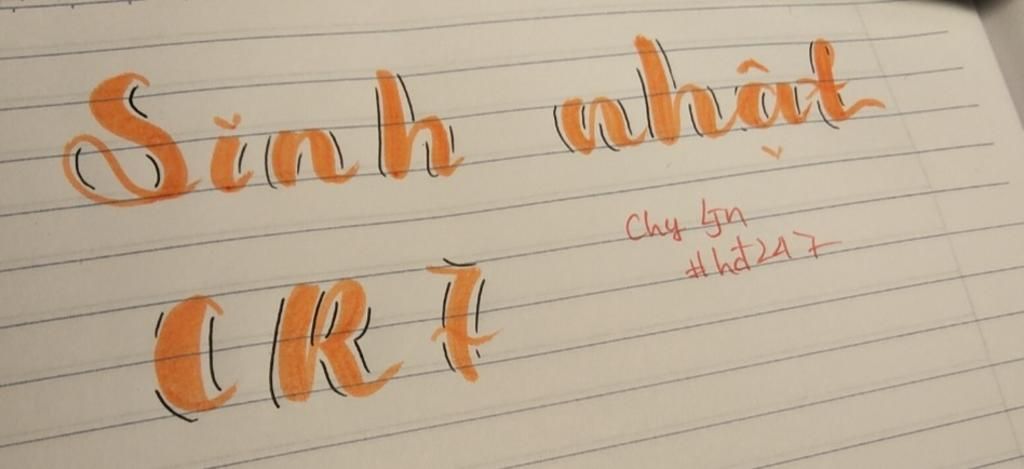 Sinh nhật
Chy Ljn
#hđ247
CR7